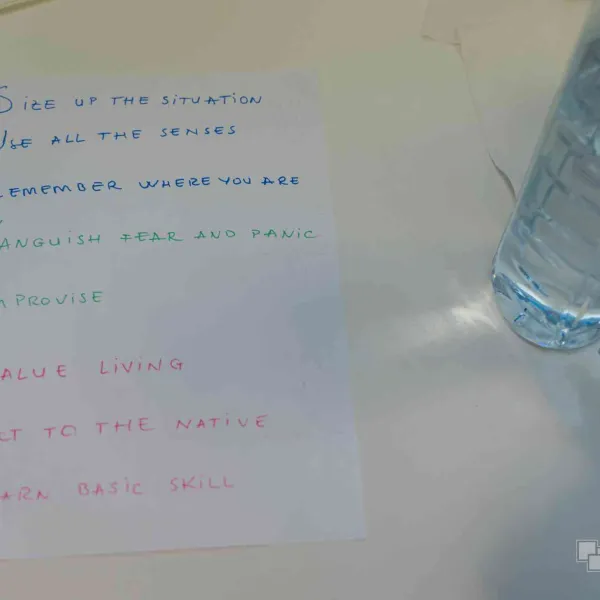 SizE UP THE SiTUATiON
USE ALL THE SENSES
EMEMBER WHERE YOU ARE
ANGUiSH FEAR AND PANiC
MPROViSE
ALUE LiViNG
CT TO THE NATiVE
ARN BASiC SKiLL